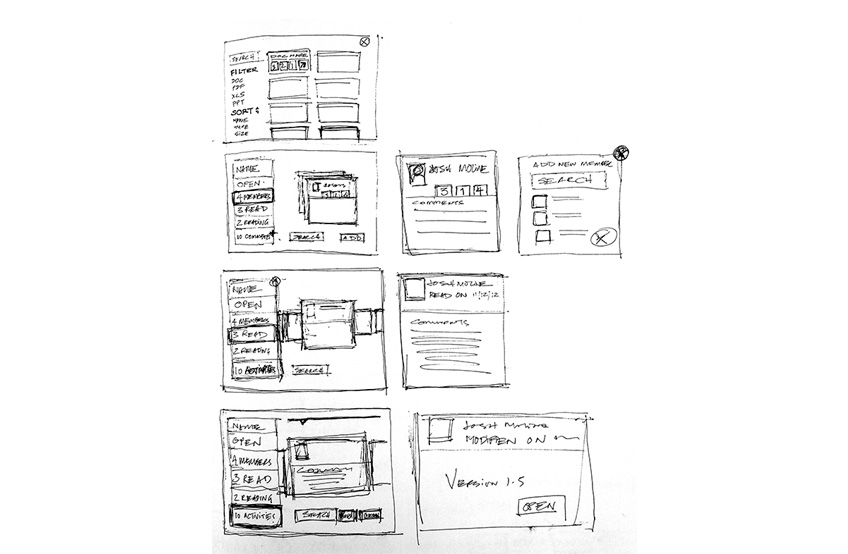 SEARCH
DOC NAME
3 2 1
FILTER
DOC
PDF
XLS
PPT
SORT
NAME
TYPE
SIZE
NAME
OPEN
4 MEMBERS
3 READ
2 READING
10 COMMENTS
SEARCH
ADD
JOSH MOLINE
3 1 4
COMMENTS
ADD NEW MEMBER
SEARCH
NAME
OPEN
4 MEMBERS
3 READ
2 READING
10 ACTIVITIES
SEARCH
JOSH MOLINE
READ ON 11/12/12
COMMENTS
NAME
OPEN
4 MEMBERS
3 READ
2 READING
10 ACTIVITIES
COMMENTS
SEARCH
JOSH MOLINE
MODIFIED ON
VERSION 1.5
OPEN